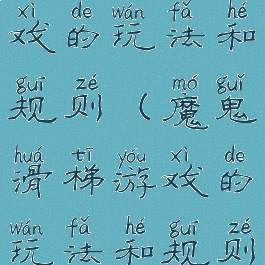 xì de wán fǎ hé
戏的玩法和
guī zé mó guǐ
规则(魔鬼
huá tī yóu xì de
滑梯游戏的
wán fǎ hé guī zé
玩法和规则